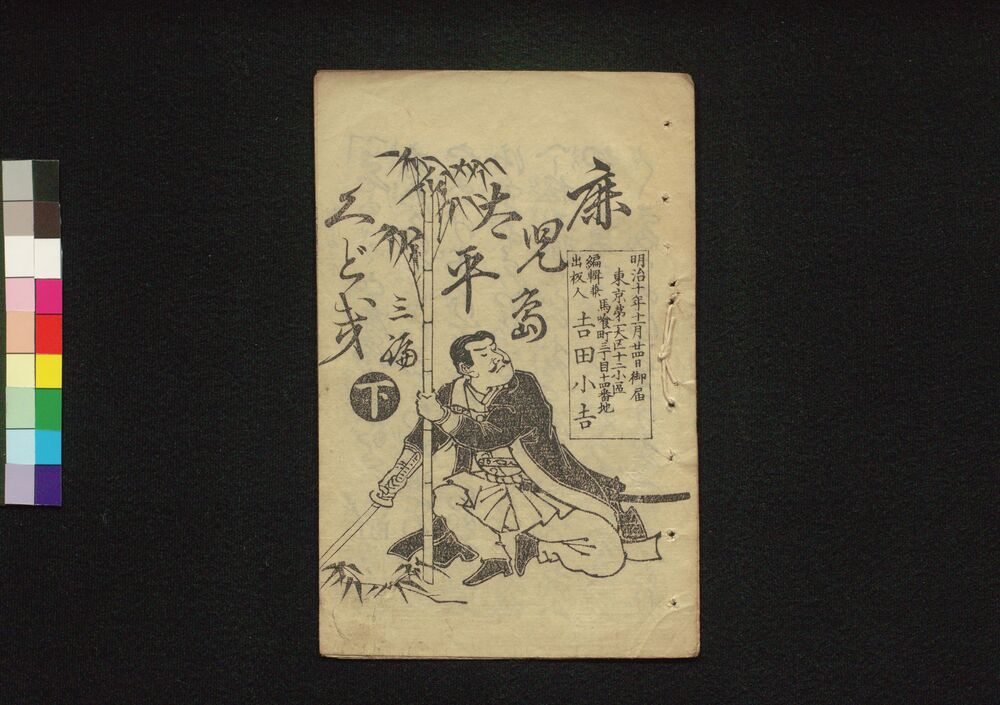 明治十年十一月廿四日御届
東京第一大区十二小區
馬喰町三丁目十四番地
編輯兼
出板人
吉田小吉
鹿児島
太平
くどき
三編
下